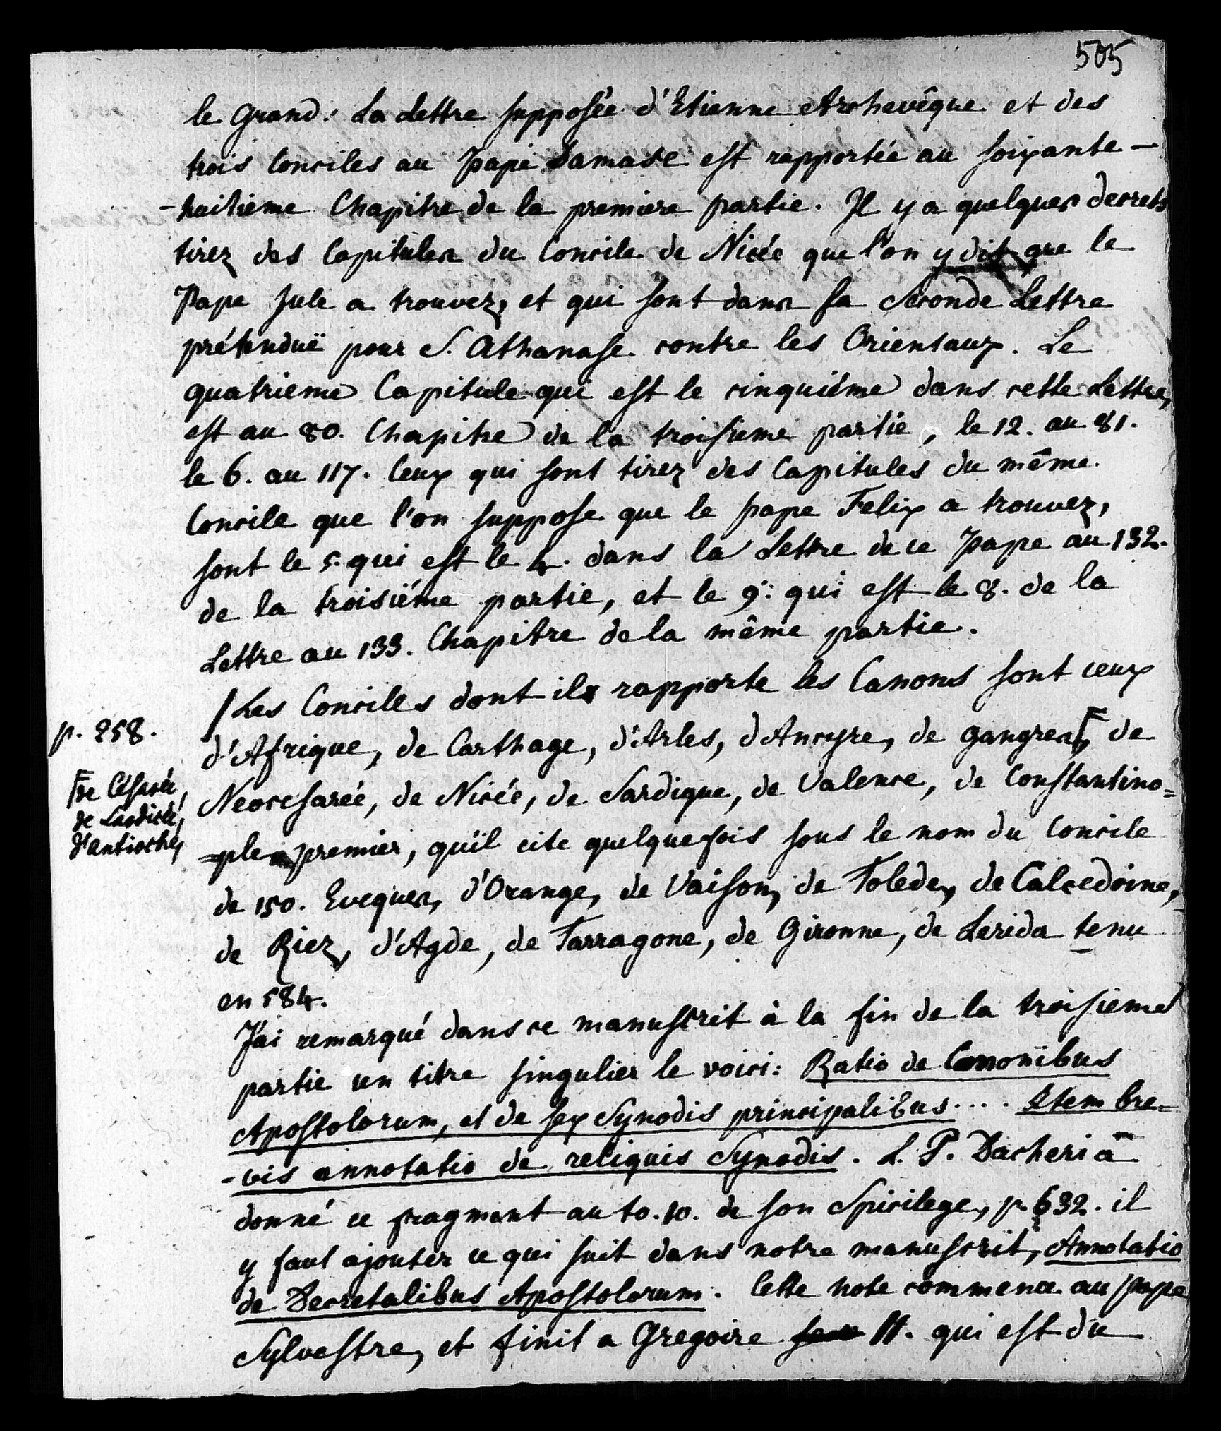 505
le grand. La Lettre supposée d'Etienne Archevêque et des
trois Conciles au Pape Damase est rapportée au soixante-
-huitieme Chapitre de la premiere partie. Il y a quelques decrets
tirez des Capitules du Concile de Nicée que l'on y dit que le
Pape Jule a trouvez, et qui sont dans sa seconde Lettre
prétenduë pour S. Athanase contre les Orientaux. Le
quatrieme Capitule qui est le cinquiéme dans cette Lettre,
est au 80. Chapitre de la troisieme partie, le 12. au 81.
le 6. au 117. Ceux qui sont tirez des Capitules du même
Concile que l'on suppose que le pape Felix a trouvez,
sont le 5. qui est le 4. dans la Lettre de ce Pape au 132.
de la troisiéme partie, et le 9. qui est le 8. de la
Lettre au 133. Chapitre de la même partie.
/ Les Conciles dont il rapporte les Canons sont ceux
p. 258.
d'Afrique, de Carthage, d'Arles, d'Ancyre, de gangres, de
de Césarée,
de Laodicée,
d'antioche,
Neocesarée, de Nicée, de Sardique, de Valence, de Constantino=
=ple premier, qu'il cite quelquefois sous le nom du Concile
de 150. Eveques, d'Orange, de Vaison, de Tolede, de Calcedoine,
de Riez, d'Agde, de Tarragone, de Gironne, de Lerida tenu
en 584.
J'ai remarqué dans ce manuscrit à la fin de la troisieme
partie un titre singulier le voici: Ratio de Canonibus
Apostolorum, et de sex Synodis principalibus.... Item bre=
-vis annotatio de reliquis Synodis. L. P. Dacheri a
donné ce fragment au to. 10. de son Spicilege, p. 632. il
y faut ajouter ce qui suit dans notre manuscrit, Annotatio
de Decretalibus Apostolorum. Cette note commence au pape
Sylvestre, et finit a Gregoire II. qui est du